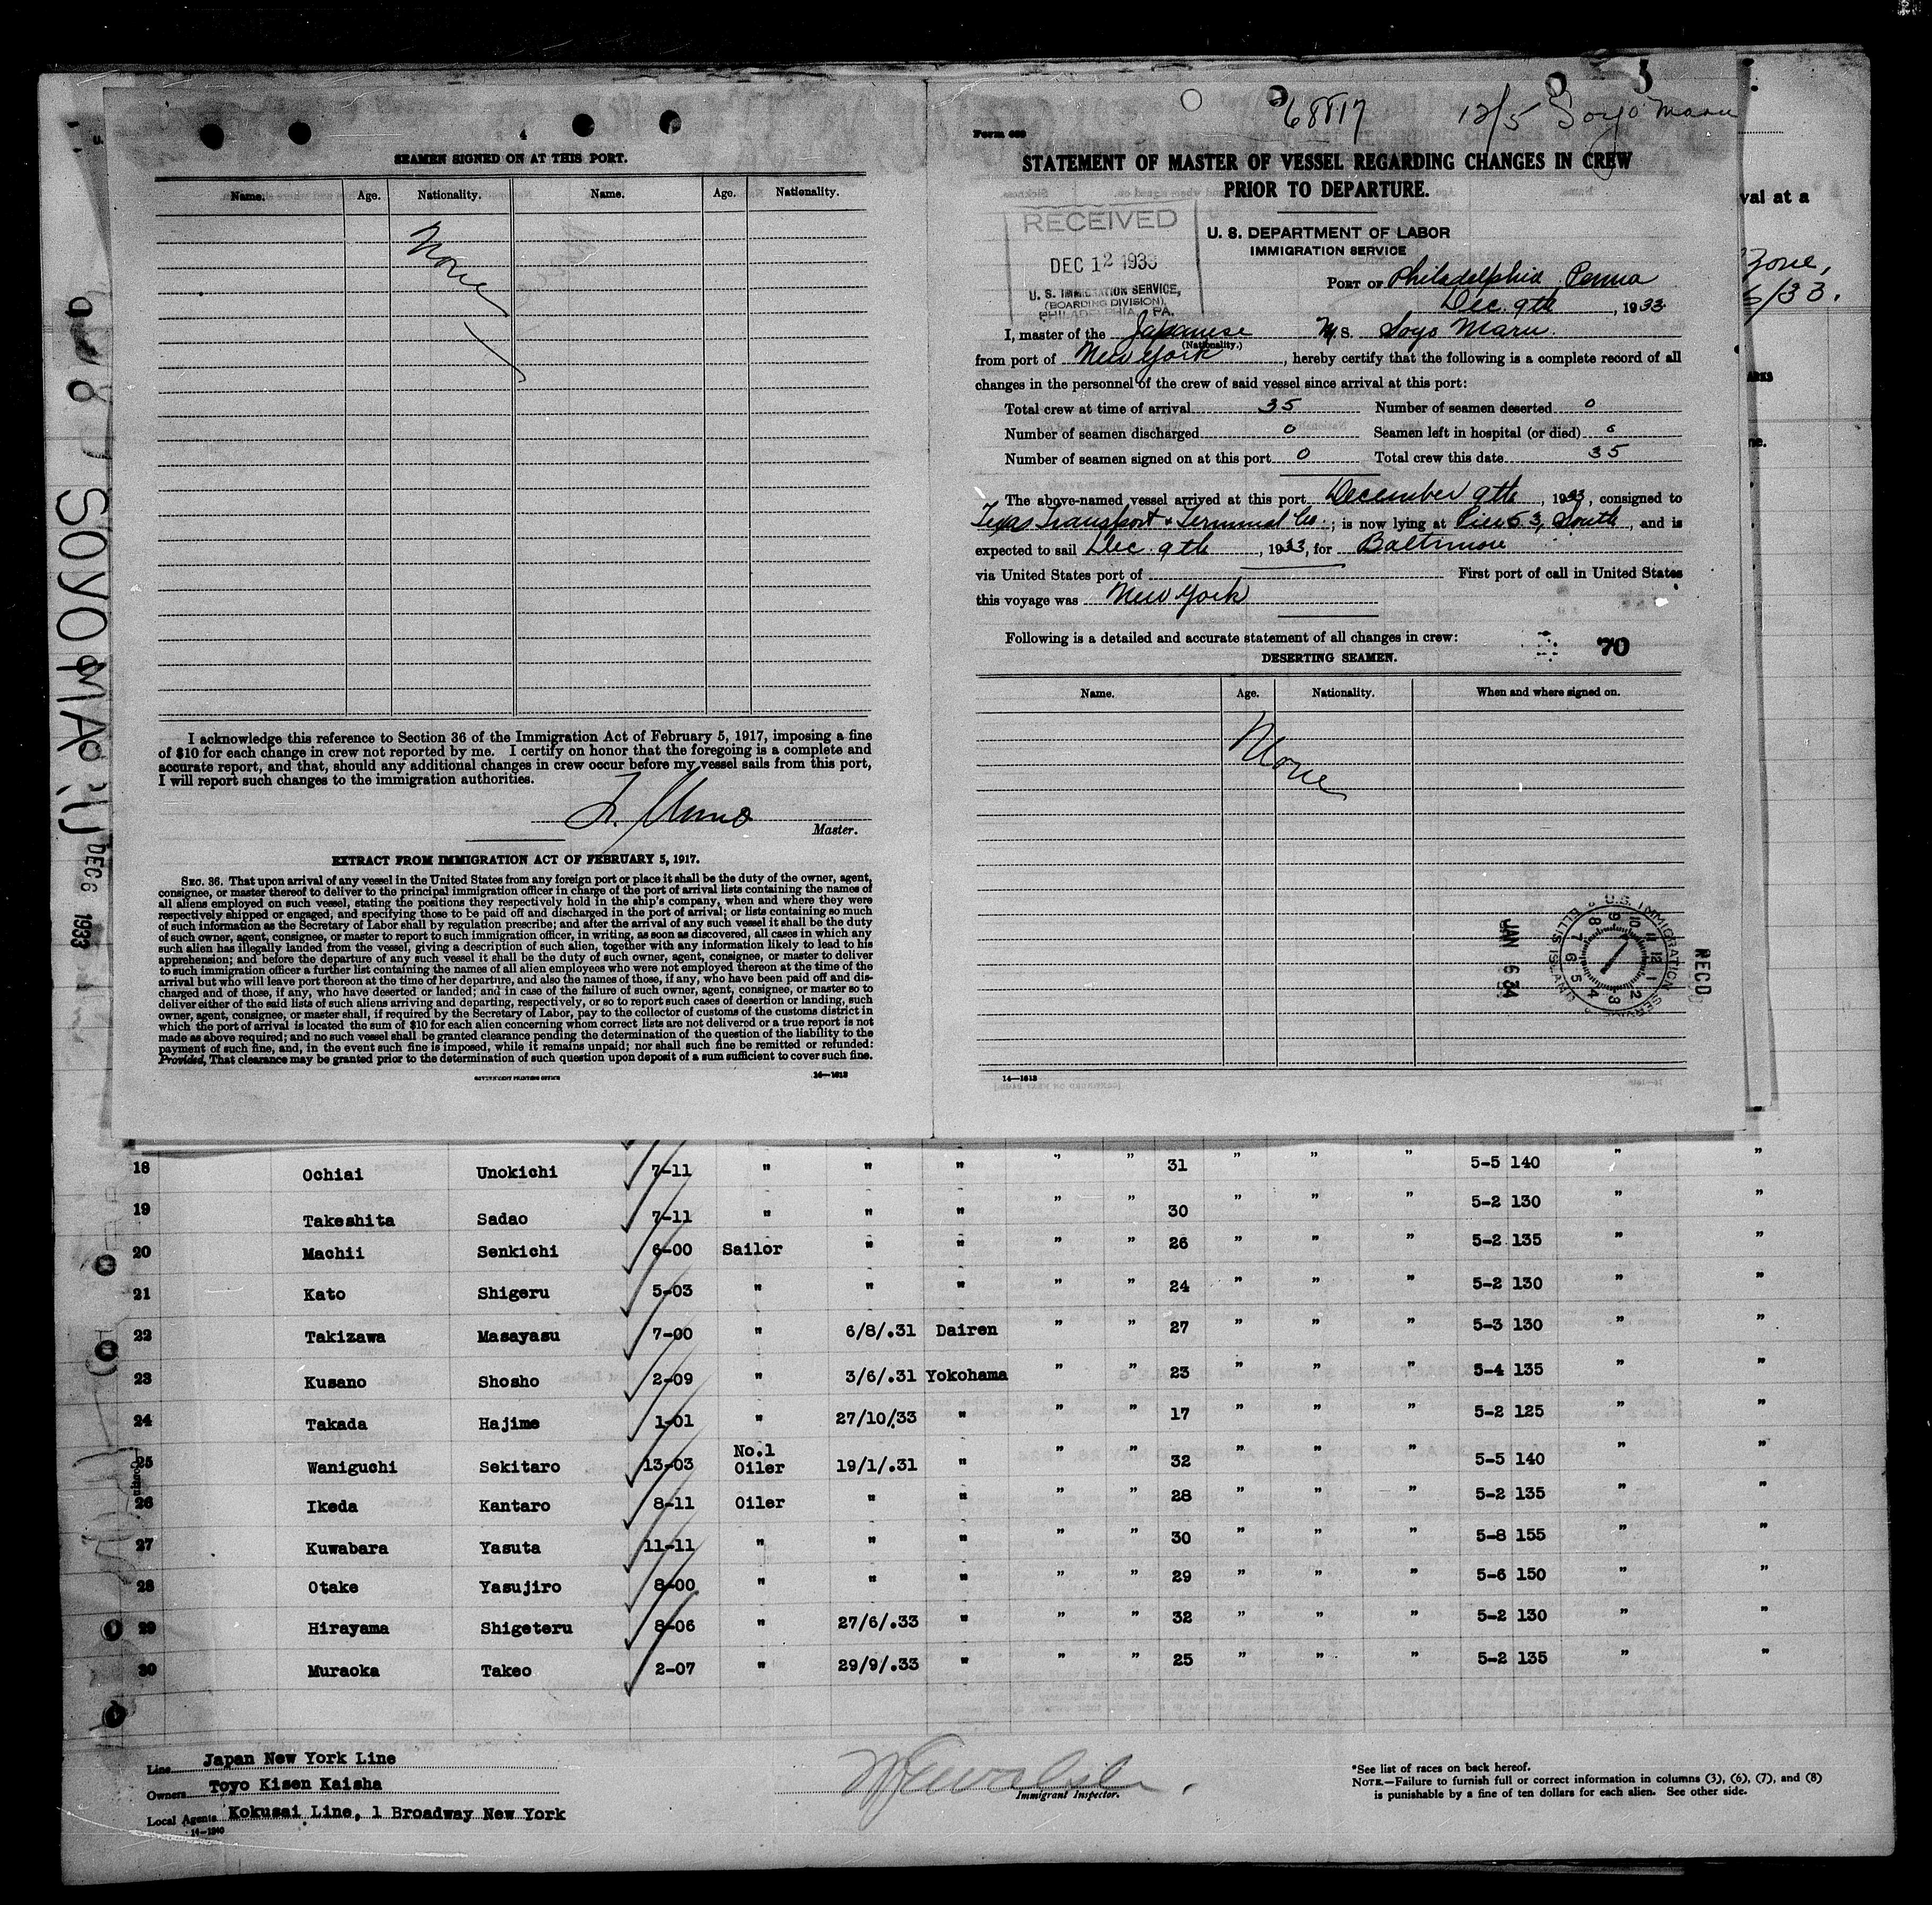 4
SEAMEN SIGNED ON AT THIS PORT.
Name. Age. Nationality. Name. Age. Nationality.
None
I acknowledge this reference to Section 36 of the Immigration Act of February 5, 1917, imposing a fine
of $10 for each change in crew not reported by me. I certify on honor that the foregoing is a complete and
accurate report, and that, should any additional changes in crew occur before my vessel sails from this port,
I will report such changes to the immigration authorities.
Master.
EXTRACT FROM IMMIGRATION ACT OF FEBRUARY 5, 1917.
SEC. 36. That upon arrival of any vessel in the United States from any foreign port or place it shall be the duty of the owner, agent,
consignee, or master thereof to deliver to the principal immigration officer in charge of the port of arrival lists containing the names of
all aliens employed on such vessel, stating the positions they respectively hold in the ship's company, when and where they were
respectively shipped or engaged, and specifying those to be paid off and discharged in the port of arrival; or lists containing so much
of such information as the Secretary of Labor shall by regulation prescribe; and after the arrival of any such vessel it shall be the duty
of such owner, agent, consignee, or master to report to such immigration officer, in writing, as soon as discovered, all cases in which any
such alien has illegally landed from the vessel, giving a description of such alien, together with any information likely to lead to his
apprehension; and before the departure of any such vessel it shall be the duty of such owner, agent, consignee, or master to deliver
to such immigration officer a further list containing the names of all alien employees who were not employed thereon at the time of the
arrival but who will leave port thereon at the time of her departure, and also the names of those, if any, who have been paid off and dis-
charged and of those, if any, who have deserted or landed; and in case of the failure of such owner, agent, consignee, or master so to
deliver either of the said lists of such aliens arriving and departing, respectively, or so to report such cases of desertion or landing, such
owner, agent, consignee, or master shall, if required by the Secretary of Labor, pay to the collector of customs of the customs district in
which the port of arrival is located the sum of $10 for each alien concerning whom correct lists are not delivered or a true report is not
made as above required; and no such vessel shall be granted clearance pending the determination of the question of the liability to the
payment of such fine, and, in the event such fine is imposed, while it remains unpaid; nor shall such fine be remitted or refunded:
Provided, That clearance may be granted prior to the determination of such question upon deposit of a sum sufficient to cover such fine.
GOVERNMENT PRINTING OFFICE 14—1613
SOYO MARU
DEC 6 1933
68817 12/5 Soyo Maru
Form 689
STATEMENT OF MASTER OF VESSEL REGARDING CHANGES IN CREW
PRIOR TO DEPARTURE.
RECEIVED
DEC 12 1933
U. S. IMMIGRATION SERVICE,
(BOARDING DIVISION),
PHILADELPHIA, PA.
U. S. DEPARTMENT OF LABOR
IMMIGRATION SERVICE
PORT OF Philadelphia Penna
Dec. 9th, 1933
I, master of the Japanese M/S. Soyo Maru.
(Nationality.)
from port of New York, hereby certify that the following is a complete record of all
changes in the personnel of the crew of said vessel since arrival at this port:
Total crew at time of arrival 35 Number of seamen deserted 0
Number of seamen discharged 0 Seamen left in hospital (or died) 0
Number of seamen signed on at this port 0 Total crew this date 35
The above-named vessel arrived at this port December 9th, 1933, consigned to
Texas Transport & Terminal Co.; is now lying at Pier 53, South, and is
expected to sail Dec. 9th, 1933, for Baltimore
via United States port of First port of call in United States
this voyage was New York
Following is a detailed and accurate statement of all changes in crew:
70
DESERTING SEAMEN.
Name. Age. Nationality. When and where signed on.
None
U.S. IMMIGRATION SERVICE ELLIS ISLAND
JAN 6 34
RECD
14—1613
val at a
Zone,
6/33.
18 Ochiai Unokichi 7-11 " " " " " 31 " " " 5-5 140 " "
19 Takeshita Sadao 7-11 " " " " " 30 " " " 5-2 130 " "
20 Machii Senkichi 6-00 Sailor " " " " 26 " " " 5-2 135 " "
21 Kato Shigeru 5-03 " " " " " 24 " " " 5-2 130 " "
22 Takizawa Masayasu 7-00 " 6/8/.31 Dairen " " 27 " " " 5-3 130 " "
23 Kusano Shosho 2-09 " 3/6/.31 Yokohama " " 23 " " " 5-4 135 " "
24 Takada Hajime 1-01 " 27/10/33 " " " 17 " " " 5-2 125 " "
25 Waniguchi Sekitaro 13-03 No.1 Oiler 19/1/.31 " " " 32 " " " 5-5 140 " "
26 Ikeda Kantaro 8-11 Oiler " " " " 28 " " " 5-2 135 " "
27 Kuwabara Yasuta 11-11 " " " " " 30 " " " 5-8 155 " "
28 Otake Yasujiro 8-00 " " " " " 29 " " " 5-6 150 " "
29 Hirayama Shigeteru 8-06 " 27/6/.33 " " " 32 " " " 5-2 130 " "
30 Muraoka Takeo 2-07 " 29/9/.33 " " " 25 " " " 5-2 135 " "
Line Japan New York Line
Owners Toyo Kisen Kaisha
Local Agents Kokusai Line, 1 Broadway New York
14—1240
Immigrant Inspector.
*See list of races on back hereof.
NOTE.—Failure to furnish full or correct information in columns (3), (6), (7), and (8)
is punishable by a fine of ten dollars for each alien. See other side.